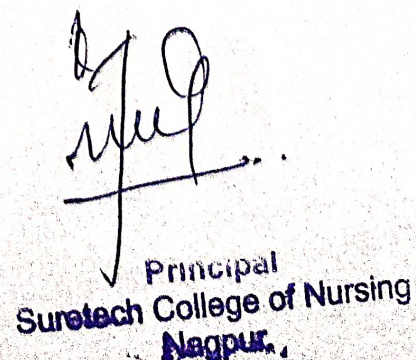 Principal
Suretech College of Nursing
Nagpur.